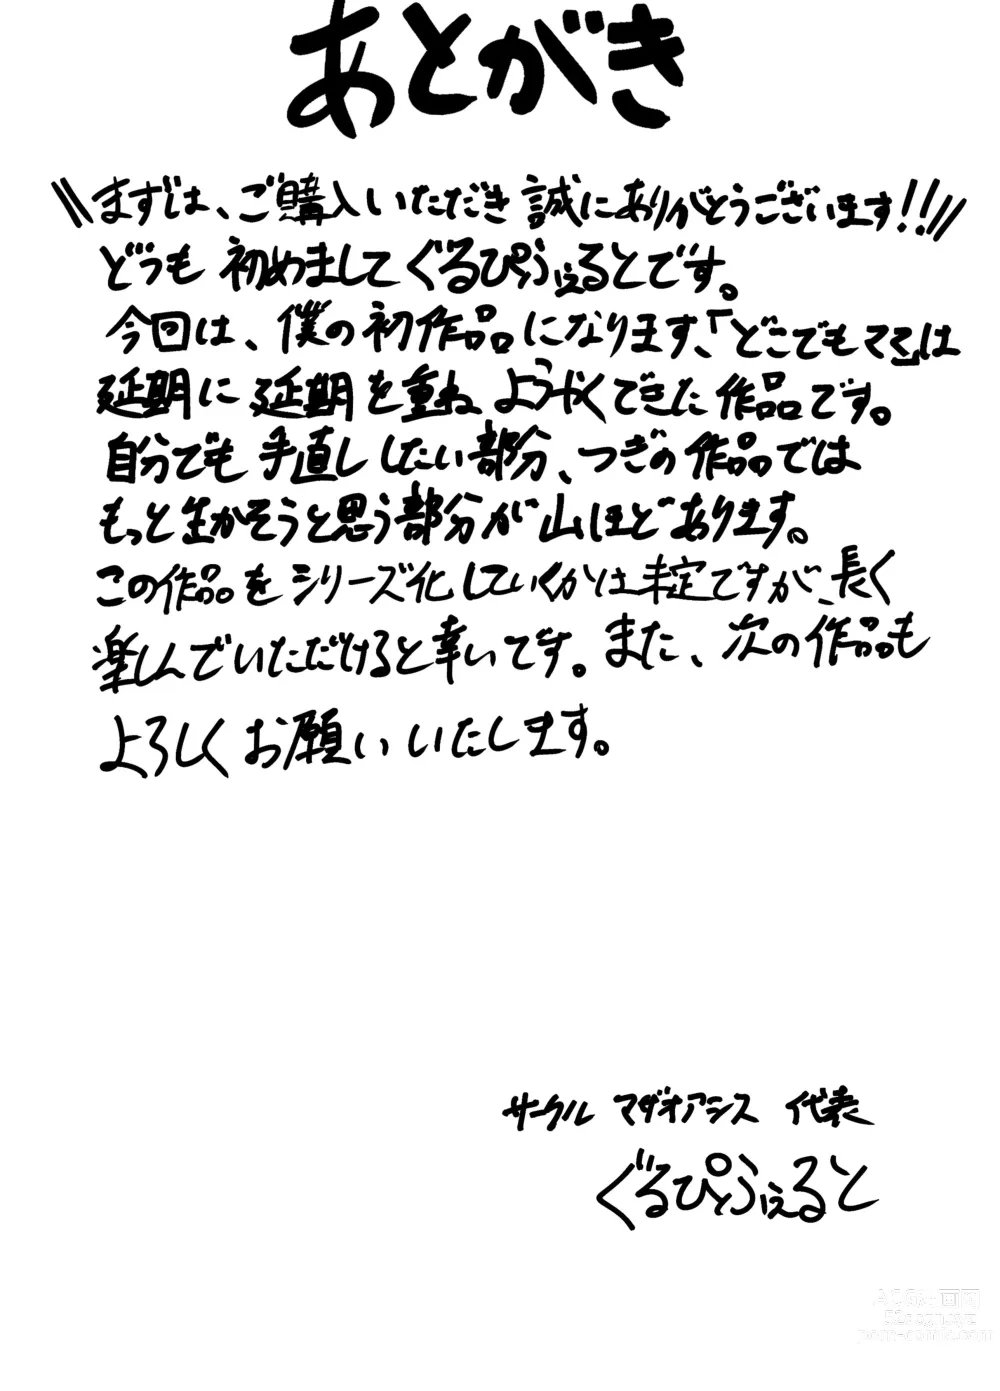 あとがき
まずは、ご購入いただき誠にありがとうございます!!
どうも初めましてぐるぴふぇるとです。
今回は、僕の初作品になります、「どこでもママ」は
延期に延期を重ねようやくできた作品です。
自分でも手直ししたい部分、つぎの作品では
もっと生かそうと思う部分が山ほどあります。
この作品をシリーズ化していくかは未定ですが、長く
楽しんでいただけると幸いです。また、次の作品も
よろしくお願いいたします。
サークル マザオアシス 代表
ぐるぴふぇると